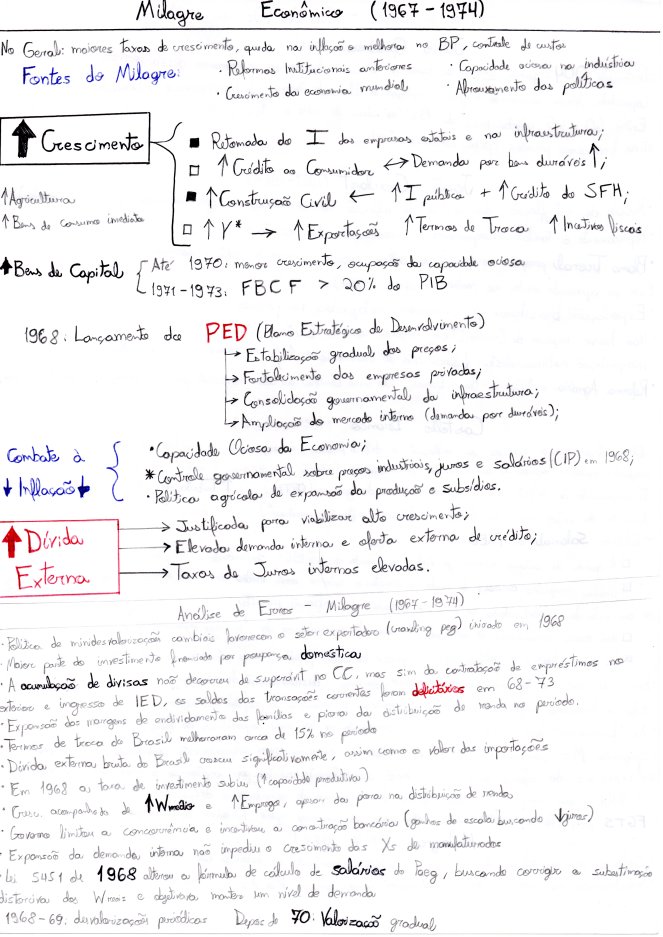 Milagre Econômico (1967-1974)
No Geral: maiores taxas de crescimento, queda na inflação e melhora no BP, controle de custos
Fontes do Milagre:
· Reformas Institucionais anteriores
· Capacidade ociosa na indústria
· Crescimento da economia mundial
· Afrouxamento das políticas
↑ Crescimento
■ Retomada do I das empresas estatais e na infraestrutura;
□ ↑Crédito ao Consumidor ↔ Demanda por bens duráveis ↑;
■ ↑Construção Civil ← ↑I pública + ↑Crédito do SFH;
□ ↑Y* → ↑Exportações ↑Termos de Troca ↑Incetivos fiscais
↑Agricultura
↑Bens de consumo imediato
↑Bens de Capital
Até 1970: menor crescimento, ocupação da capacidade ociosa
1971-1973: FBCF > 20% do PIB
1968: Lançamento do PED (Plano Estratégico de Desenvolvimento)
→ Estabilização gradual dos preços;
→ Fortalecimento das empresas privadas;
→ Consolidação governamental da infraestrutura;
→ Ampliação do mercado interno (demanda por duráveis);
Combate à
↓ Inflação ↓
· Capacidade Ociosa da Economia;
* Controle governamental sobre preços industriais, juros e salários (CIP) em 1968;
· Política agrícola de expansão da produção e subsídios.
↑ Dívida
Externa
→ Justificada para viabilizar alto crescimento;
→ Elevada demanda interna e oferta externa de crédito;
→ Taxas de Juros internas elevadas.
Análise de Erros - Milagre (1967-1974)
· Política de minidesvalorização cambiais favorecem o setor exportador (crawling peg) iniciado em 1968
· Maior parte do investimento financiado por poupança doméstica
· A acumulação de divisas não decorreu de superávit no CC, mas sim da contratação de empréstimos no
exterior e ingresso de IED, os saldos das transações correntes foram deficitários em 68-73
· Expansão das margens de endividamento das famílias e piora da distribuição de renda no período.
· Termos de troca do Brasil melhoraram cerca de 15% no período
· Dívida externa bruta do Brasil cresceu significativamente, assim como o valor das importações
· Em 1968 a taxa de investimento subiu (↑capacidade produtiva)
· Cresc. acompanhado de ↑W médio e ↑Emprego, apesar da piora na distribuição de renda
· Governo limitou a concorrência e incentivou a concentração bancária (ganhos de escala buscando ↓juros)
· Expansão da demanda interna não impediu o crescimento das Xs de manufaturados
· Lei 5451 de 1968 alterou a fórmula de cálculo de salários do Paeg, buscando corrigir a subestimação
distorciva dos W reais e objetivava manter um nível de demanda
1968-69: desvalorizações periódicas Depois de 70: Valorização gradual